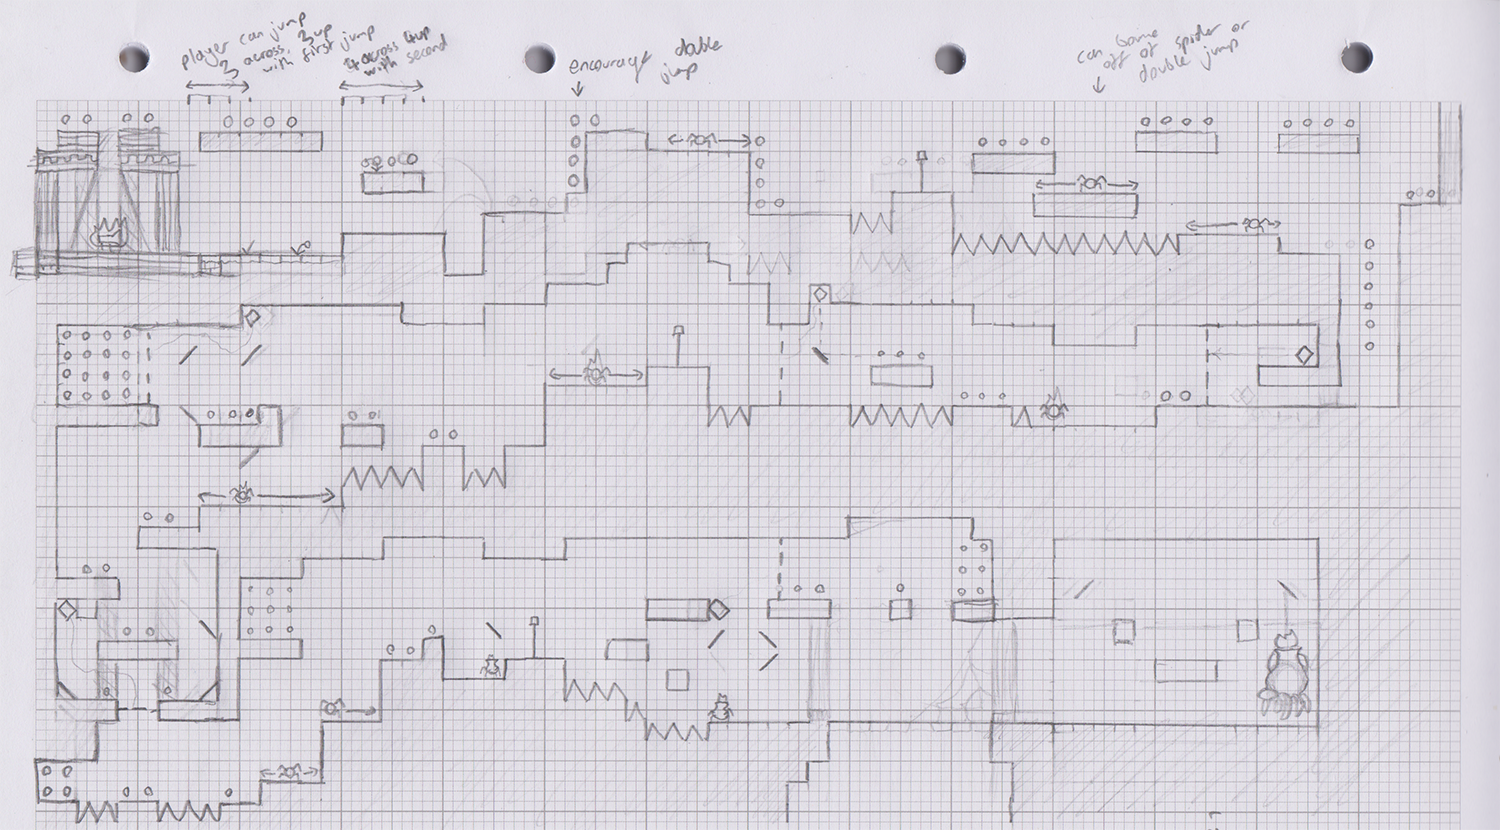 player can jump
3 across, 3 up
with first jump
4 across 4 up
with second
encourage double
jump
can bounce
off of spider or
double jump